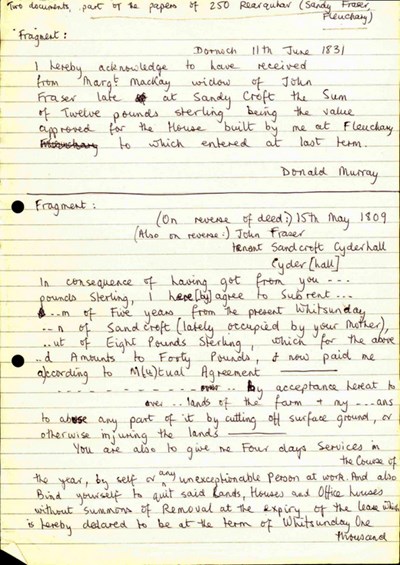 Two documents, part of the papers of 250 Rearquhar (Sandy Fraser,
Fleuchary)
Fragment:
Dornoch 11th June 1831
I hereby acknowledge to have received
from Margt. Mackay widow of John
Fraser late at Sandy Croft the Sum
of Twelve pounds sterling being the value
apprised for the House built by me at Fleuchary
to which entered at last term.
Donald Murray
Fragment:
(On reverse of deed:) 15th May 1809
(Also on reverse:) John Fraser
tenant Sandcroft Cyderhall
Cyder[hall]
In consequence of having got from you ---
pounds Sterling, I here[by] agree to Subrent ---
..m of Five years from the present Whitsunday
..n of Sandcroft (lately occupied by your Mother),
..ut of Eight Pounds Sterling, which for the above
..d Amounts to Forty Pounds, & now paid me
according to M(u)tual Agreement
---------- .. by acceptance hereat to
over .. lands of the farm + my ...ans
to abuse any part of it by cutting off surface ground, or
otherwise injuring the lands
You are also to give me Four days Services in
the Course of
the year, by self or any unexceptionable Person at work. And also
Bind yourself to quit said Lands, Houses and Office houses
without summons of Removal at the expiry of the lease which
is hereby declared to be at the term of Whitsunday One
thousand